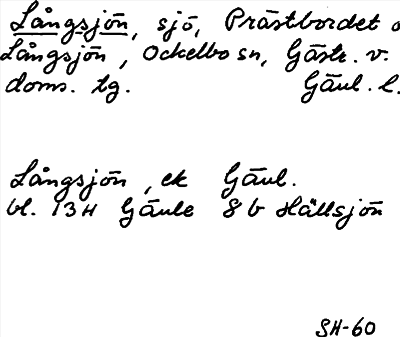 Långsjön, sjö, Prästbordet o
Långsjön, Ockelbo sn, Gästr. v.
doms. tg. Gävl. l.
Långsjön, ek Gävl.
bl. 13H Gävle 8b Hällsjön
SH-60